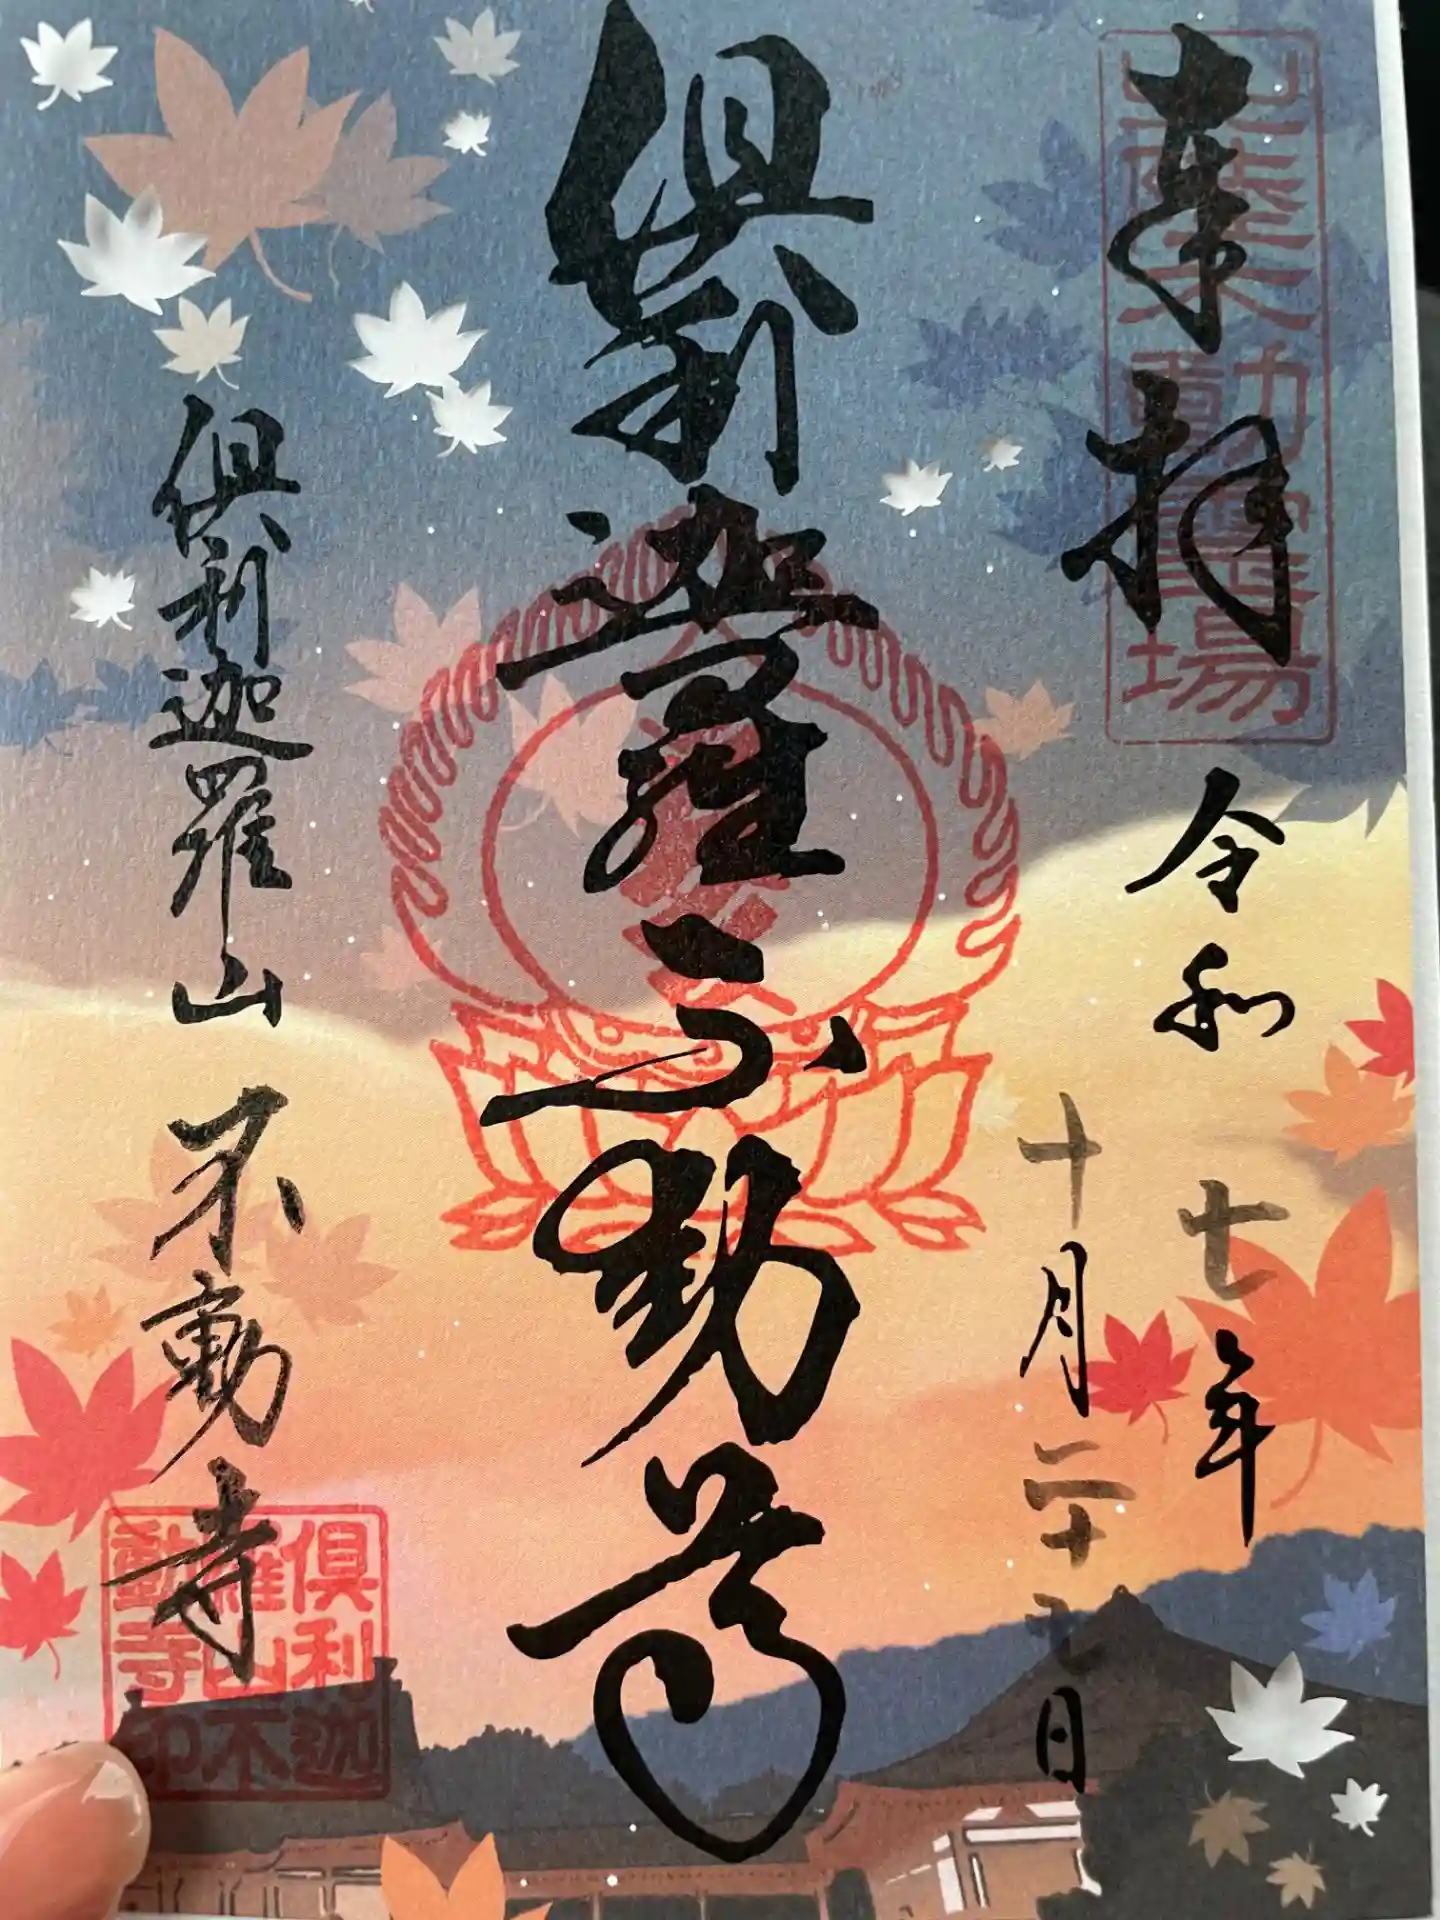 奉拝
三大不動霊場
令和七年
十月二十七日
倶利迦羅不動尊
倶利迦羅山不動寺
倶利迦羅山不動寺印